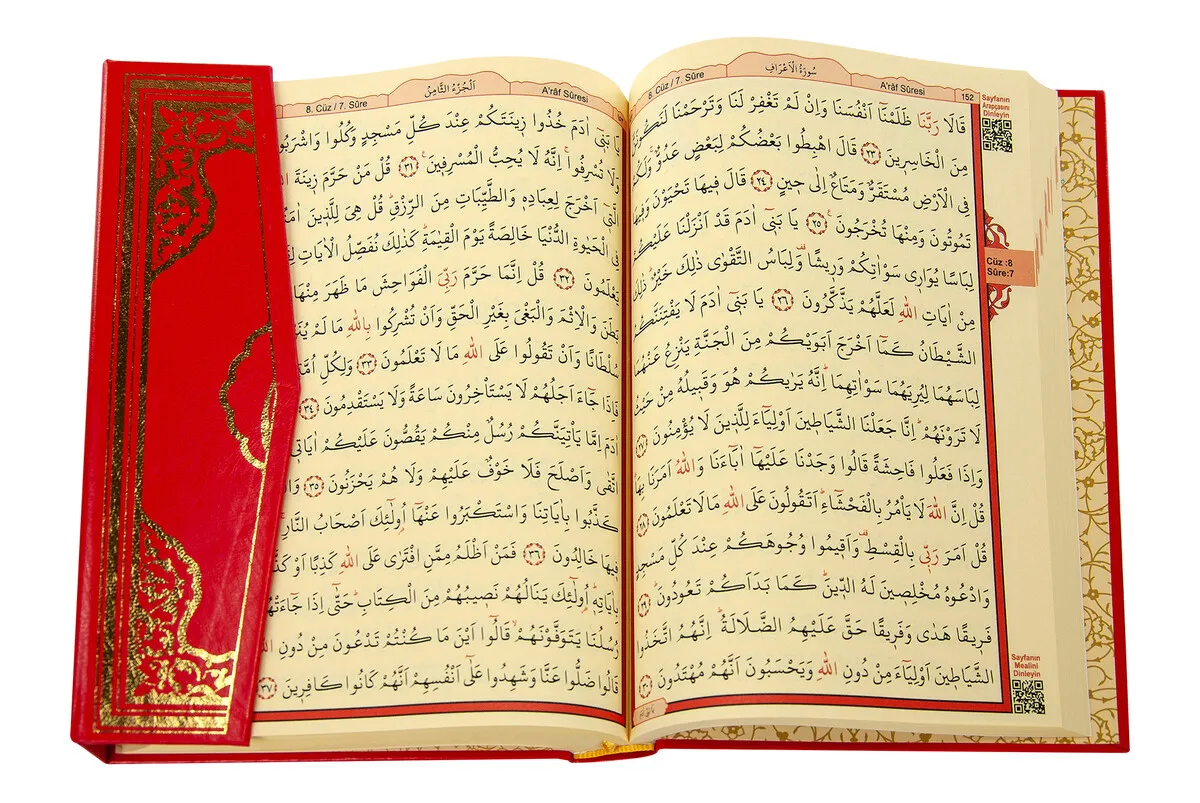 8. Cüz / 7. Sûre
سُورَةُ الْاَعْرَافِ
A'râf Sûresi
152
قَالَا رَبَّنَا ظَلَمْنَا اَنْفُسَنَا وَاِنْ لَمْ تَغْفِرْ لَنَا وَتَرْحَمْنَا لَنَكُونَنَّ
مِنَ الْخَاسِرِينَ ﴿٢٣﴾ قَالَ اهْبِطُوا بَعْضُكُمْ لِبَعْضٍ عَدُوٌّ وَلَكُمْ
فِي الْاَرْضِ مُسْتَقَرٌّ وَمَتَاعٌ اِلٰى حِينٍ ﴿٢٤﴾ قَالَ فِيهَا تَحْيَوْنَ وَفِيهَا
تَمُوتُونَ وَمِنْهَا تُخْرَجُونَ ﴿٢٥﴾ يَا بَنِٓي اٰدَمَ قَدْ اَنْزَلْنَا عَلَيْكُمْ
لِبَاسًا يُوَارِي سَوْاٰتِكُمْ وَرِيشًا وَلِبَاسُ التَّقْوٰى ذٰلِكَ خَيْرٌ ذٰلِكَ
مِنْ اٰيَاتِ اللّٰهِ لَعَلَّهُمْ يَذَّكَّرُونَ ﴿٢٦﴾ يَا بَنِٓي اٰدَمَ لَا يَفْتِنَنَّكُمُ
الشَّيْطَانُ كَمَٓا اَخْرَجَ اَبَوَيْكُمْ مِنَ الْجَنَّةِ يَنْزِعُ عَنْهُمَا
لِبَاسَهُمَا لِيُرِيَهُمَا سَوْاٰتِهِمَا اِنَّهُ يَرٰيكُمْ هُوَ وَقَبِيلُهُ مِنْ حَيْثُ
لَا تَرَوْنَهُمْ اِنَّا جَعَلْنَا الشَّيَاطِينَ اَوْلِيَٓاءَ لِلَّذِينَ لَا يُؤْمِنُونَ ﴿٢٧﴾
وَاِذَا فَعَلُوا فَاحِشَةً قَالُوا وَجَدْنَا عَلَيْهَٓا اٰبَٓاءَنَا وَاللّٰهُ اَمَرَنَا بِهَا
قُلْ اِنَّ اللّٰهَ لَا يَأْمُرُ بِالْفَحْشَٓاءِ اَتَقُولُونَ عَلَى اللّٰهِ مَا لَا تَعْلَمُونَ ﴿٢٨﴾
قُلْ اَمَرَ رَبِّي بِالْقِسْطِ وَاَقِيمُوا وُجُوهَكُمْ عِنْدَ كُلِّ مَسْجِدٍ
وَادْعُوهُ مُخْلِصِينَ لَهُ الدِّينَ كَمَا بَدَاَكُمْ تَعُودُونَ ﴿٢٩﴾
فَرِيقًا هَدٰى وَفَرِيقًا حَقَّ عَلَيْهِمُ الضَّلَالَةُ اِنَّهُمُ اتَّخَذُوا
الشَّيَاطِينَ اَوْلِيَٓاءَ مِنْ دُونِ اللّٰهِ وَيَحْسَبُونَ اَنَّهُمْ مُهْتَدُونَ ﴿٣٠﴾
Sayfanın
Arapçasını
Dinleyin
Cüz :8
Sûre:7
Sayfanın
Mealini
Dinleyin
8. Cüz / 7. Sûre
اَلْجُزْءُ الثَّامِنُ
A'râf Sûresi
يَا بَنِٓي اٰدَمَ خُذُوا زِينَتَكُمْ عِنْدَ كُلِّ مَسْجِدٍ وَكُلُوا وَاشْرَبُوا
وَلَا تُسْرِفُوا اِنَّهُ لَا يُحِبُّ الْمُسْرِفِينَ ﴿٣١﴾ قُلْ مَنْ حَرَّمَ زِينَةَ
الَّتِٓي اَخْرَجَ لِعِبَادِهِ وَالطَّيِّبَاتِ مِنَ الرِّزْقِ قُلْ هِيَ لِلَّذِينَ اٰمَنُوا
فِي الْحَيٰوةِ الدُّنْيَا خَالِصَةً يَوْمَ الْقِيٰمَةِ كَذٰلِكَ نُفَصِّلُ الْاٰيَاتِ
يَعْلَمُونَ ﴿٣٢﴾ قُلْ اِنَّمَا حَرَّمَ رَبِّيَ الْفَوَاحِشَ مَا ظَهَرَ مِنْهَا
بَطَنَ وَالْاِثْمَ وَالْبَغْيَ بِغَيْرِ الْحَقِّ وَاَنْ تُشْرِكُوا بِاللّٰهِ مَا لَمْ
سُلْطَانًا وَاَنْ تَقُولُوا عَلَى اللّٰهِ مَا لَا تَعْلَمُونَ ﴿٣٣﴾ وَلِكُلِّ
فَاِذَا جَٓاءَ اَجَلُهُمْ لَا يَسْتَأْخِرُونَ سَاعَةً وَلَا يَسْتَقْدِمُونَ ﴿٣٤﴾
اٰدَمَ اِمَّا يَأْتِيَنَّكُمْ رُسُلٌ مِنْكُمْ يَقُصُّونَ عَلَيْكُمْ اٰيَاتِي
اتَّقٰى وَاَصْلَحَ فَلَا خَوْفٌ عَلَيْهِمْ وَلَا هُمْ يَحْزَنُونَ ﴿٣٥﴾
كَذَّبُوا بِاٰيَاتِنَا وَاسْتَكْبَرُوا عَنْهَٓا اُولٰٓئِكَ اَصْحَابُ النَّارِ
فِيهَا خَالِدُونَ ﴿٣٦﴾ فَمَنْ اَظْلَمُ مِمَّنِ افْتَرٰى عَلَى اللّٰهِ كَذِبًا اَوْ
بِاٰيَاتِهِ اُولٰٓئِكَ يَنَالُهُمْ نَصِيبُهُمْ مِنَ الْكِتَابِ حَتّٰٓى اِذَا جَٓاءَتْهُمْ
رُسُلُنَا يَتَوَفَّوْنَهُمْ قَالُٓوا اَيْنَ مَا كُنْتُمْ تَدْعُونَ مِنْ دُونِ
قَالُوا ضَلُّوا عَنَّا وَشَهِدُوا عَلٰٓى اَنْفُسِهِمْ اَنَّهُمْ كَانُوا كَافِرِينَ ﴿٣٧﴾